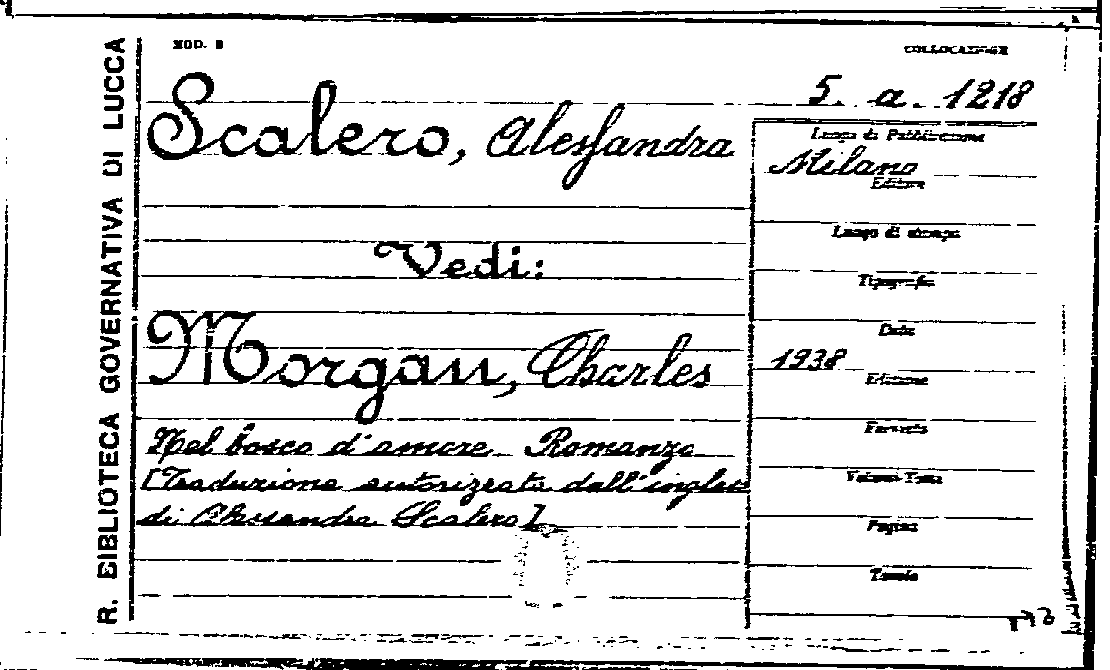 R. BIBLIOTECA GOVERNATIVA DI LUCCA
MOD. B
COLLOCAZIONE
5. a. 1218
Scalero, Alessandra
Luogo di Pubblicazione
Milano
Editore
Luogo di stampa
Vedi:
Tipografia
Data
Morgan, Charles
1938
Edizione
Formato
Nel bosco d'amore. Romanzo
[Traduzione autorizzata dall'inglese
Volumi Tomi
di Alessandra Scalero]
Pagine
Tavole